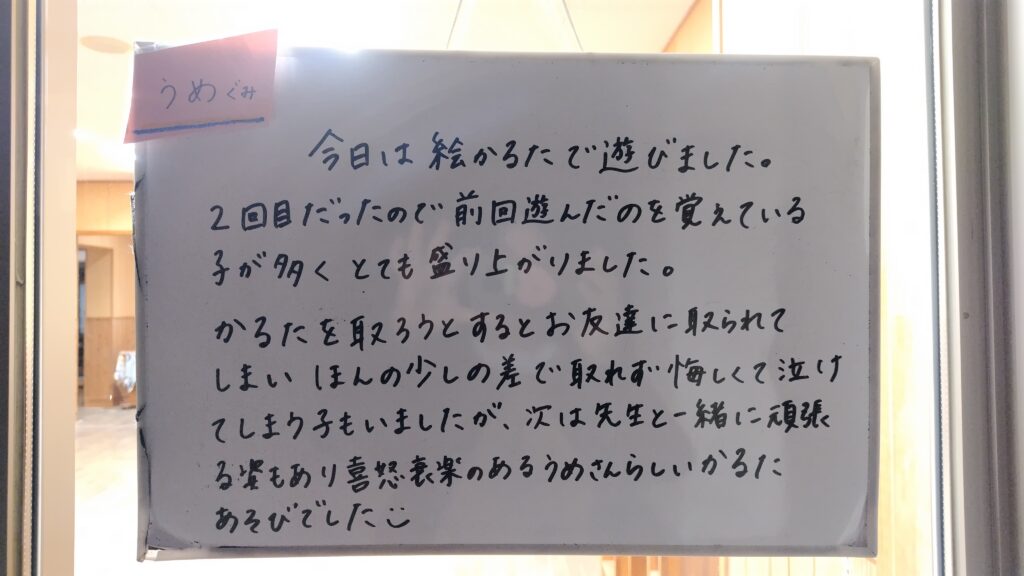 うめぐみ
今日は絵かるたで遊びました。
2回目だったので前回遊んだのを覚えている
子が多くとても盛り上がりました。
かるたを取ろうとするとお友達に取られて
しまいほんの少しの差で取れず悔しくて泣け
てしまう子もいましたが、次は先生と一緒に頑張
る姿もあり喜怒哀楽のあるうめさんらしいかるた
あそびでした